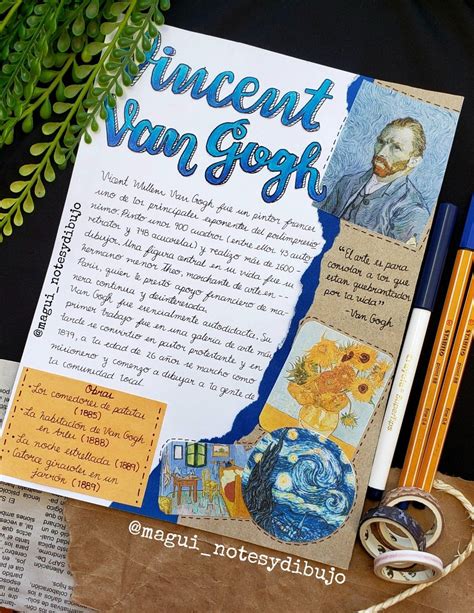 Vincent
Van Gogh
Vicent Wullem Van Gogh fue un pintor
uno de los principales exponente del postimpresio
nismo. Pinto unos 900 cuadros (entre ellos 43 auto
retratos y 148 acuarelas) y realizó más de 1600
dibujos. Una figura central en su vida fue su
hermano menor theo, marchante de arte en --
París, quien le prestó apoyo financiero de ma
nera continua y desinteresada.
Van Gogh fue esencialmente autodidacta. Su
primer trabajo fue en una galería de arte más
tarde se convirtio en pastor protestante y en
1879, a la edad de 26 años se marcho como
misionero y comenzo a dibujar a la gente de
la comunidad local.
"El arte es para
consolar a los que
están quebrantados
por la vida"
-Van Gogh
Obras
-Los comedores de patatas
(1885)
-La habitación de Van Gogh
en Arles (1888)
-La noche estrellada (1889)
-Catorce girasoles en un
jarrón (1889)
@magui_notesydibujo
@magui_notesydibujo
STABILO